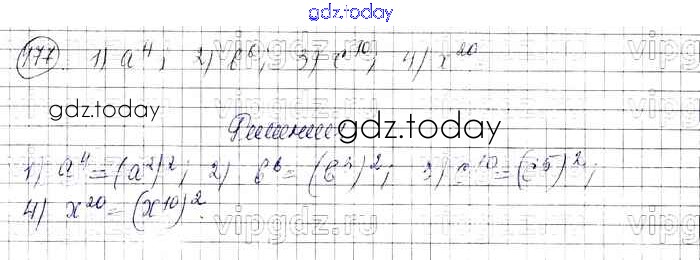 gdz.today
177. 1) a⁴; 2) b⁶; 3) c¹⁰; 4) x²⁰
vipgdz.ru
gdz.today
Решение gdz.today
1) a⁴=(a²)²; 2) b⁶=(b³)²; 3) c¹⁰=(c⁵)²;
4) x²⁰=(x¹⁰)².
vipgdz.ru